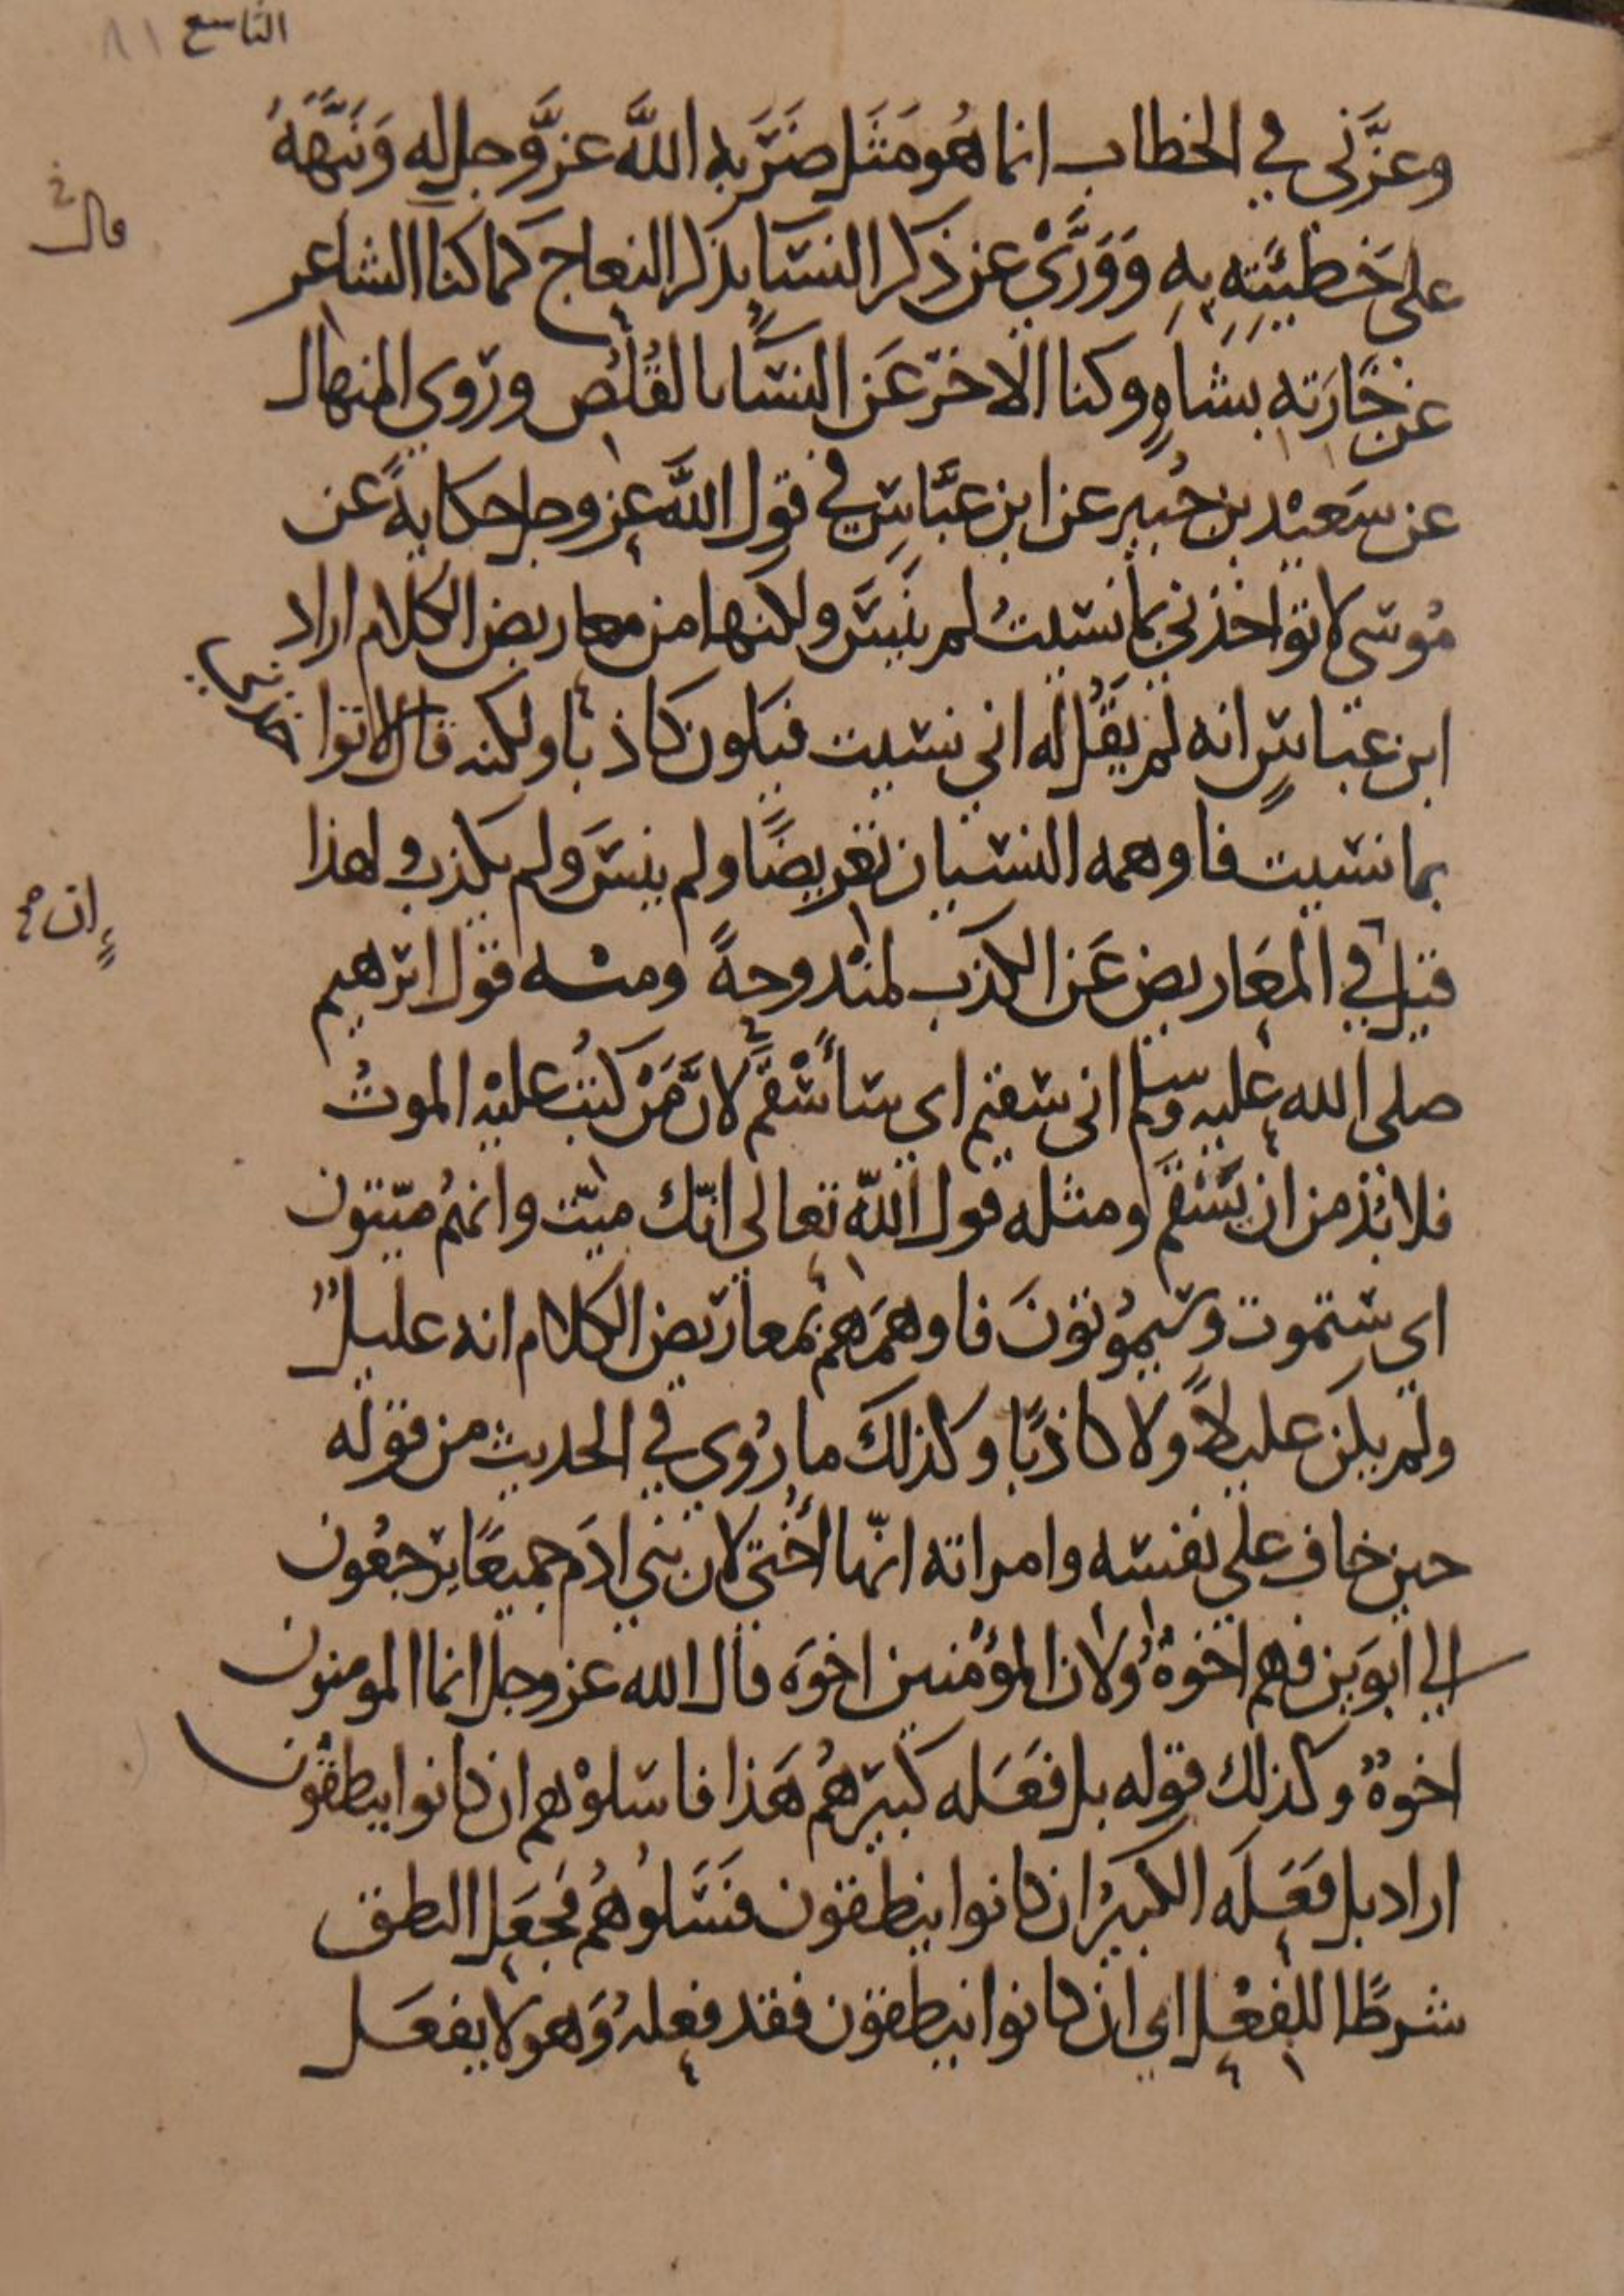 التاسع ٨١
وعزَّنى في الخطاب انما هُو مَثَل ضَرَبه اللّه عزَّوجل له وَنَبَّهَهُ
على خَطيَئتِه به وَوَرَّى عن ذكر النسَاءِ بذكر النعاج كما كنا الشاعر
قال خ
عن جَارَته بشاهٍ وكنا الاخر عَن النسَاء بالقُلُص وروى المنهال
عن سَعيْد بن جُبير عن ابن عبَّاسٍ في قول اللّه عز وجل حكايةً عن
مُوسى لا تؤاخذني بما نسَيتُ لم يَنسَ ولكنها من معاريض الكلام اراد
ابن عباسٍ انه لم يقُل له انى نسيت فيكون كاذبًا ولكنه قال لا تؤاخذني
بما نسيت فاوهمه النسيان تعريضًا ولم ينسَ ولم يكذب ولهذا
قيل في المعَاريض عَن الكذب لمنْدوحةً ومنه قول ابرهيم
إن صح
صلى الله عليه وسلم انى سقيم اى سَأَسْقَم لانَّ مَنْ كُتِبَ عليْه الموتُ
فلا بُدّ من ان يَسْقَم ومثله قول اللّه تعالى انّك ميّت وانهُم ميّتون
اي ستموت وسَيمُوتونَ فاوهَمَهم بمعاريض الكلام انه عليلٌ
ولم يكن عليلاً ولا كاذبًا وكذلك ما رُوى في الحديث من قوله
حين خاف على نفسه وامراته انّها اُختى لان بنى ادَم جميعًا يرجعُون
الى ابوَين فهم اخوةٌ ولان المؤْمنين اخوَه قال الله عز وجل انما المومنون
اخوةٌ وكذلك قوله بل فعَله كبيرهُم هَذا فاسَلوْهم ان كانوا ينطقُون
اراد بل فعَلَه الكبيرُ ان كانوا ينطقون فسَلُوهُم فجعَل النطق
شرطًا للفعْل اى ان كانوا ينطقون فقد فعلهُ وَهو لا يفعَل